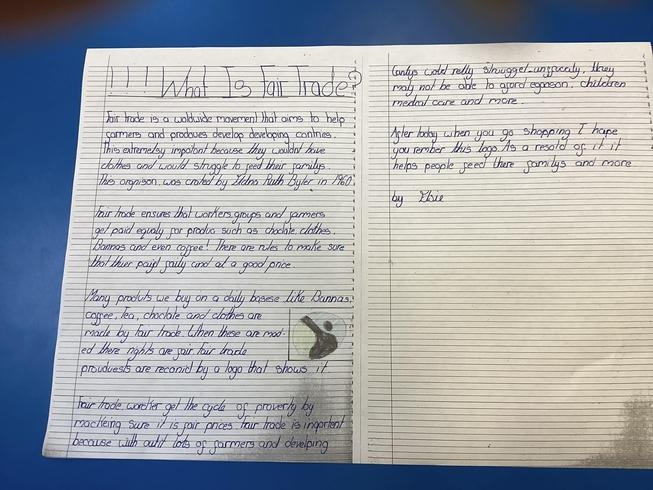 !!! What Is Fair Trade?
Fair trade is a woldwide movement that aims to help
farmers and produes develop developing contries.
This extremelsy impotant because they wouldnt have
clothes and would struggle to feed their familys.
This orgnison, was crated by Eldna Ruth Byler in 1960.
Fair trade ensures that workers, groups and farmers
get paid equaly for produc such as choclate, clothes,
Bannas and even coffee! There are rules to make sure
that thier paid faily and at a good price.
Many produts we buy on a daily basese like Bannas,
coffee, tea, choclate and clothes are
made by fair trade. When these are mad-
ed there rights are fair fair trade
prouduests are reconid by a logo that shows it.
Fair trade worcker get the cycle of proverty by
mackeing sure it is fair prices fair trade is inportent
because with outit lots of farmers and develping
contys wold relly struggel unfarely, they
may not be able to aford children
medcal care and more.
After today when you go shopping I hope
you rember this logo. As a resold of it it
helps people feed there familys and more
by Elsie